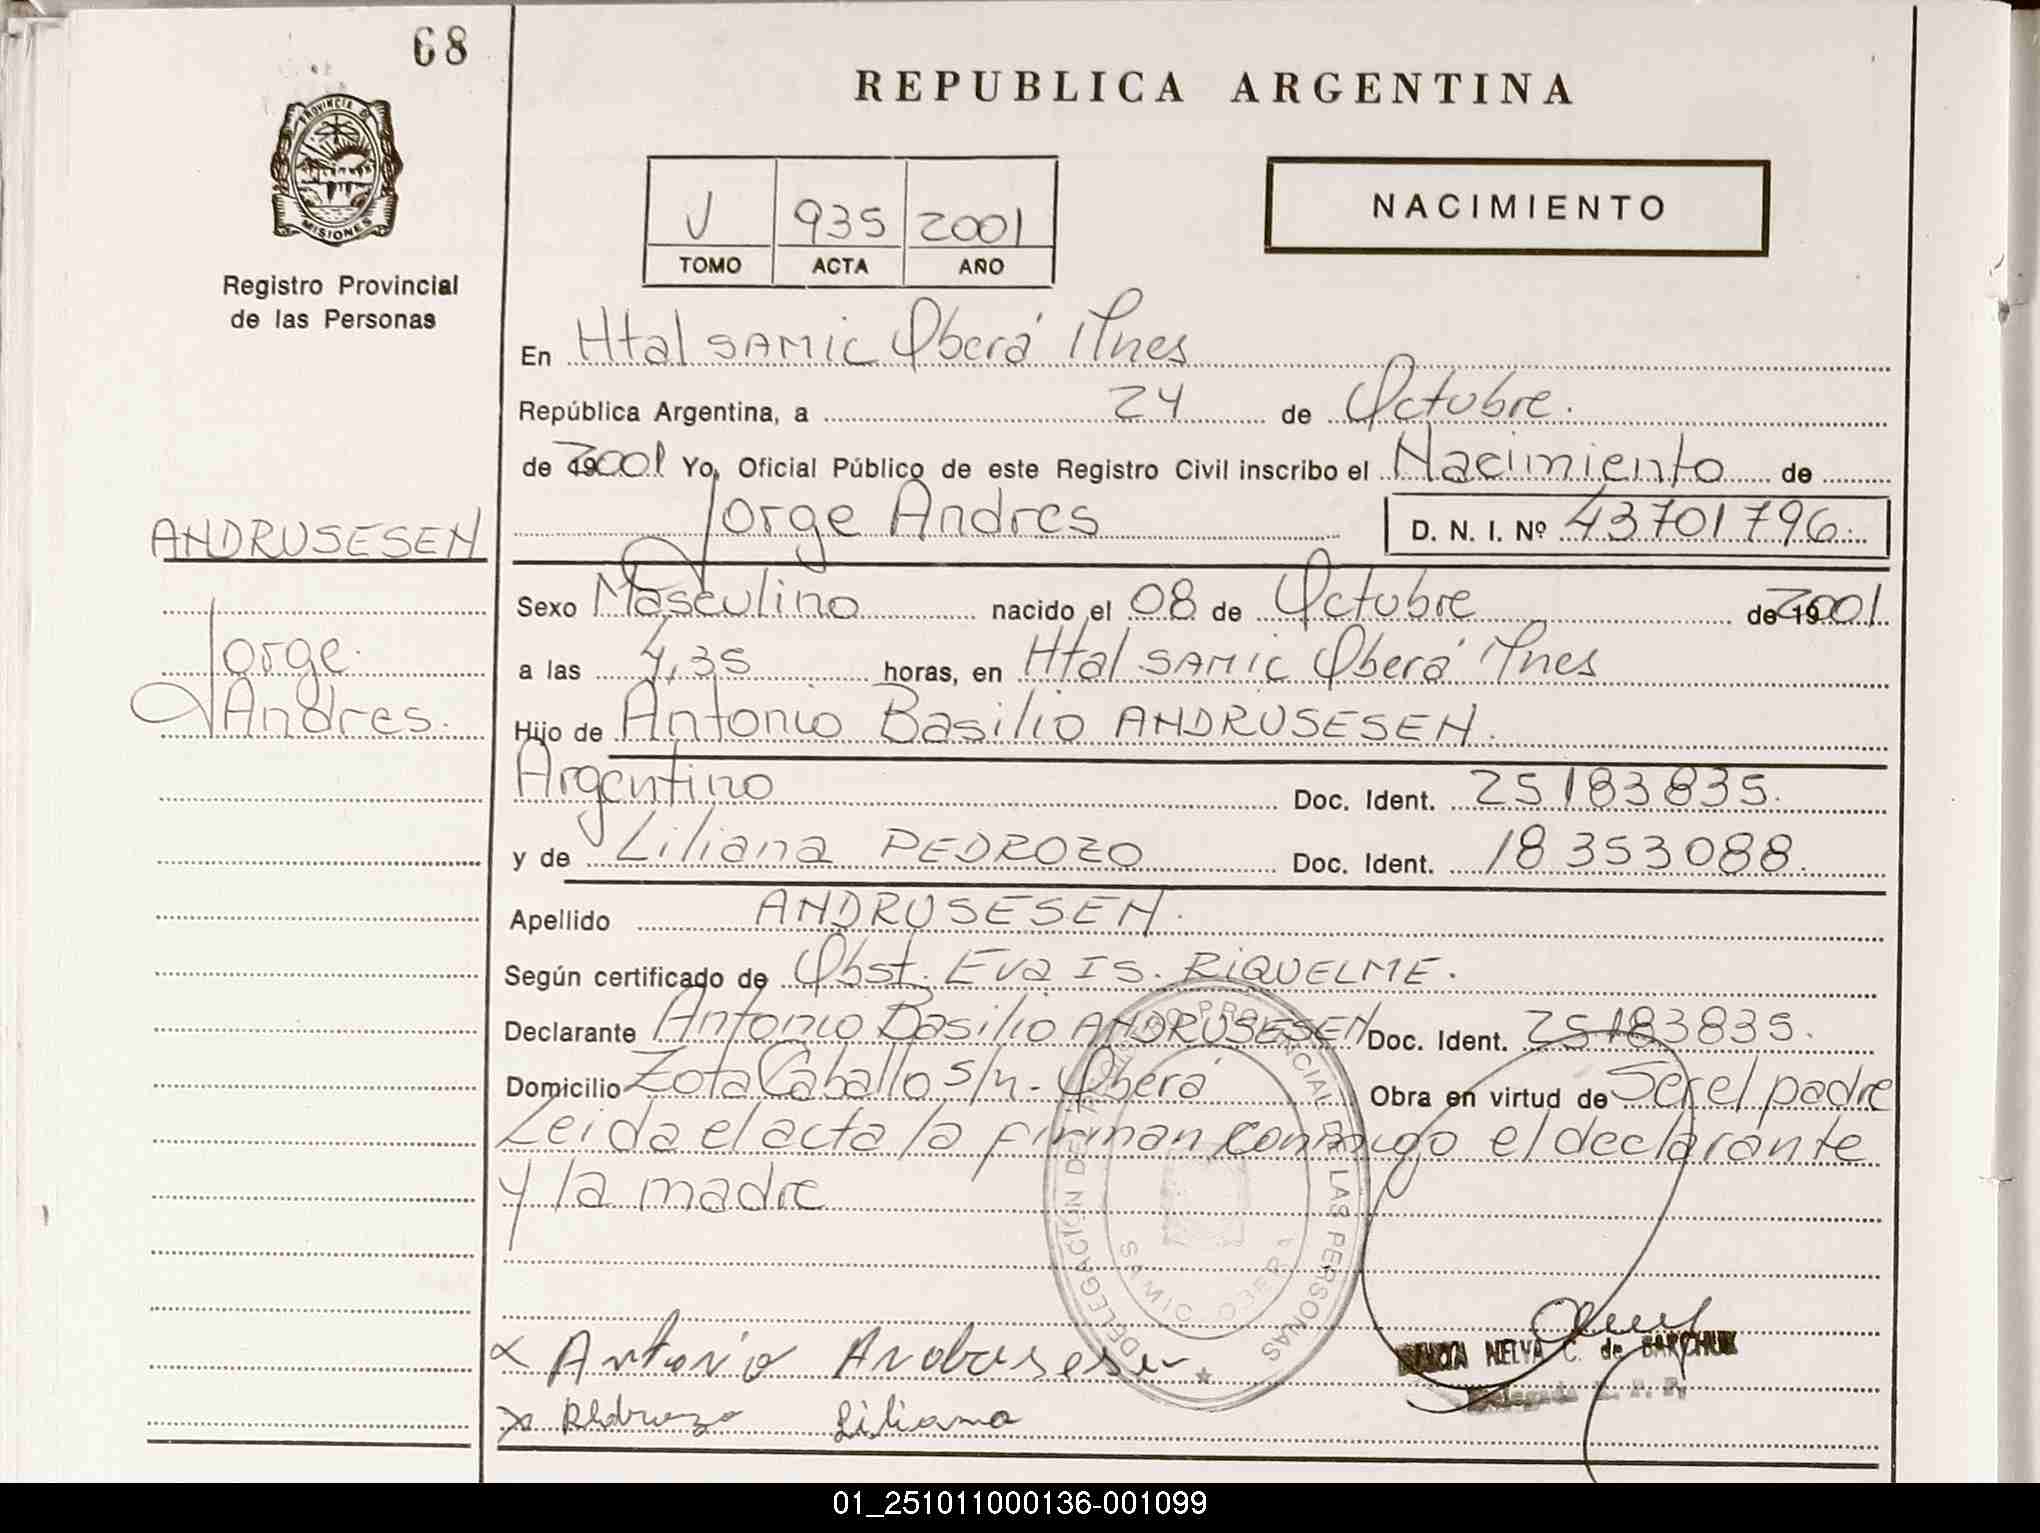 68
REPUBLICA ARGENTINA
PROVINCIA DE
MISIONES
Registro Provincial
de las Personas
J 935 2001
TOMO ACTA AÑO
NACIMIENTO
En Htal SAMIC Oberá Mnes
República Argentina, a 24 de Octubre.
de 2001 Yo, Oficial Público de este Registro Civil inscribo el Nacimiento de
Jorge Andres D. N. I. Nº 43701796.
ANDRUSESEN
Jorge
Andres.
Sexo Masculino nacido el 08 de Octubre de 2001
a las 4,35 horas, en Htal SAMIC Oberá Mnes
Hijo de Antonio Basilio ANDRUSESEN.
Argentino Doc. Ident. 25183835.
y de Liliana PEDROZO Doc. Ident. 18353088.
Apellido ANDRUSESEN.
Según certificado de Obst. Eva IS. RIQUELME.
Declarante Antonio Basilio ANDRUSESEN Doc. Ident. 25183835.
Domicilio Zota Caballo s/n - Oberá Obra en virtud de Ser el padre
Leida el acta la firman conmigo el declarante
y la madre
DELEGACIÓN DEL REGISTRO PROVINCIAL DE LAS PERSONAS
SAMIC OBERA
x Antonio Andrusesen
x Pedrozo Liliana
NELVA C. de BARCHUK
Delegada R. P. P.
01_251011000136-001099